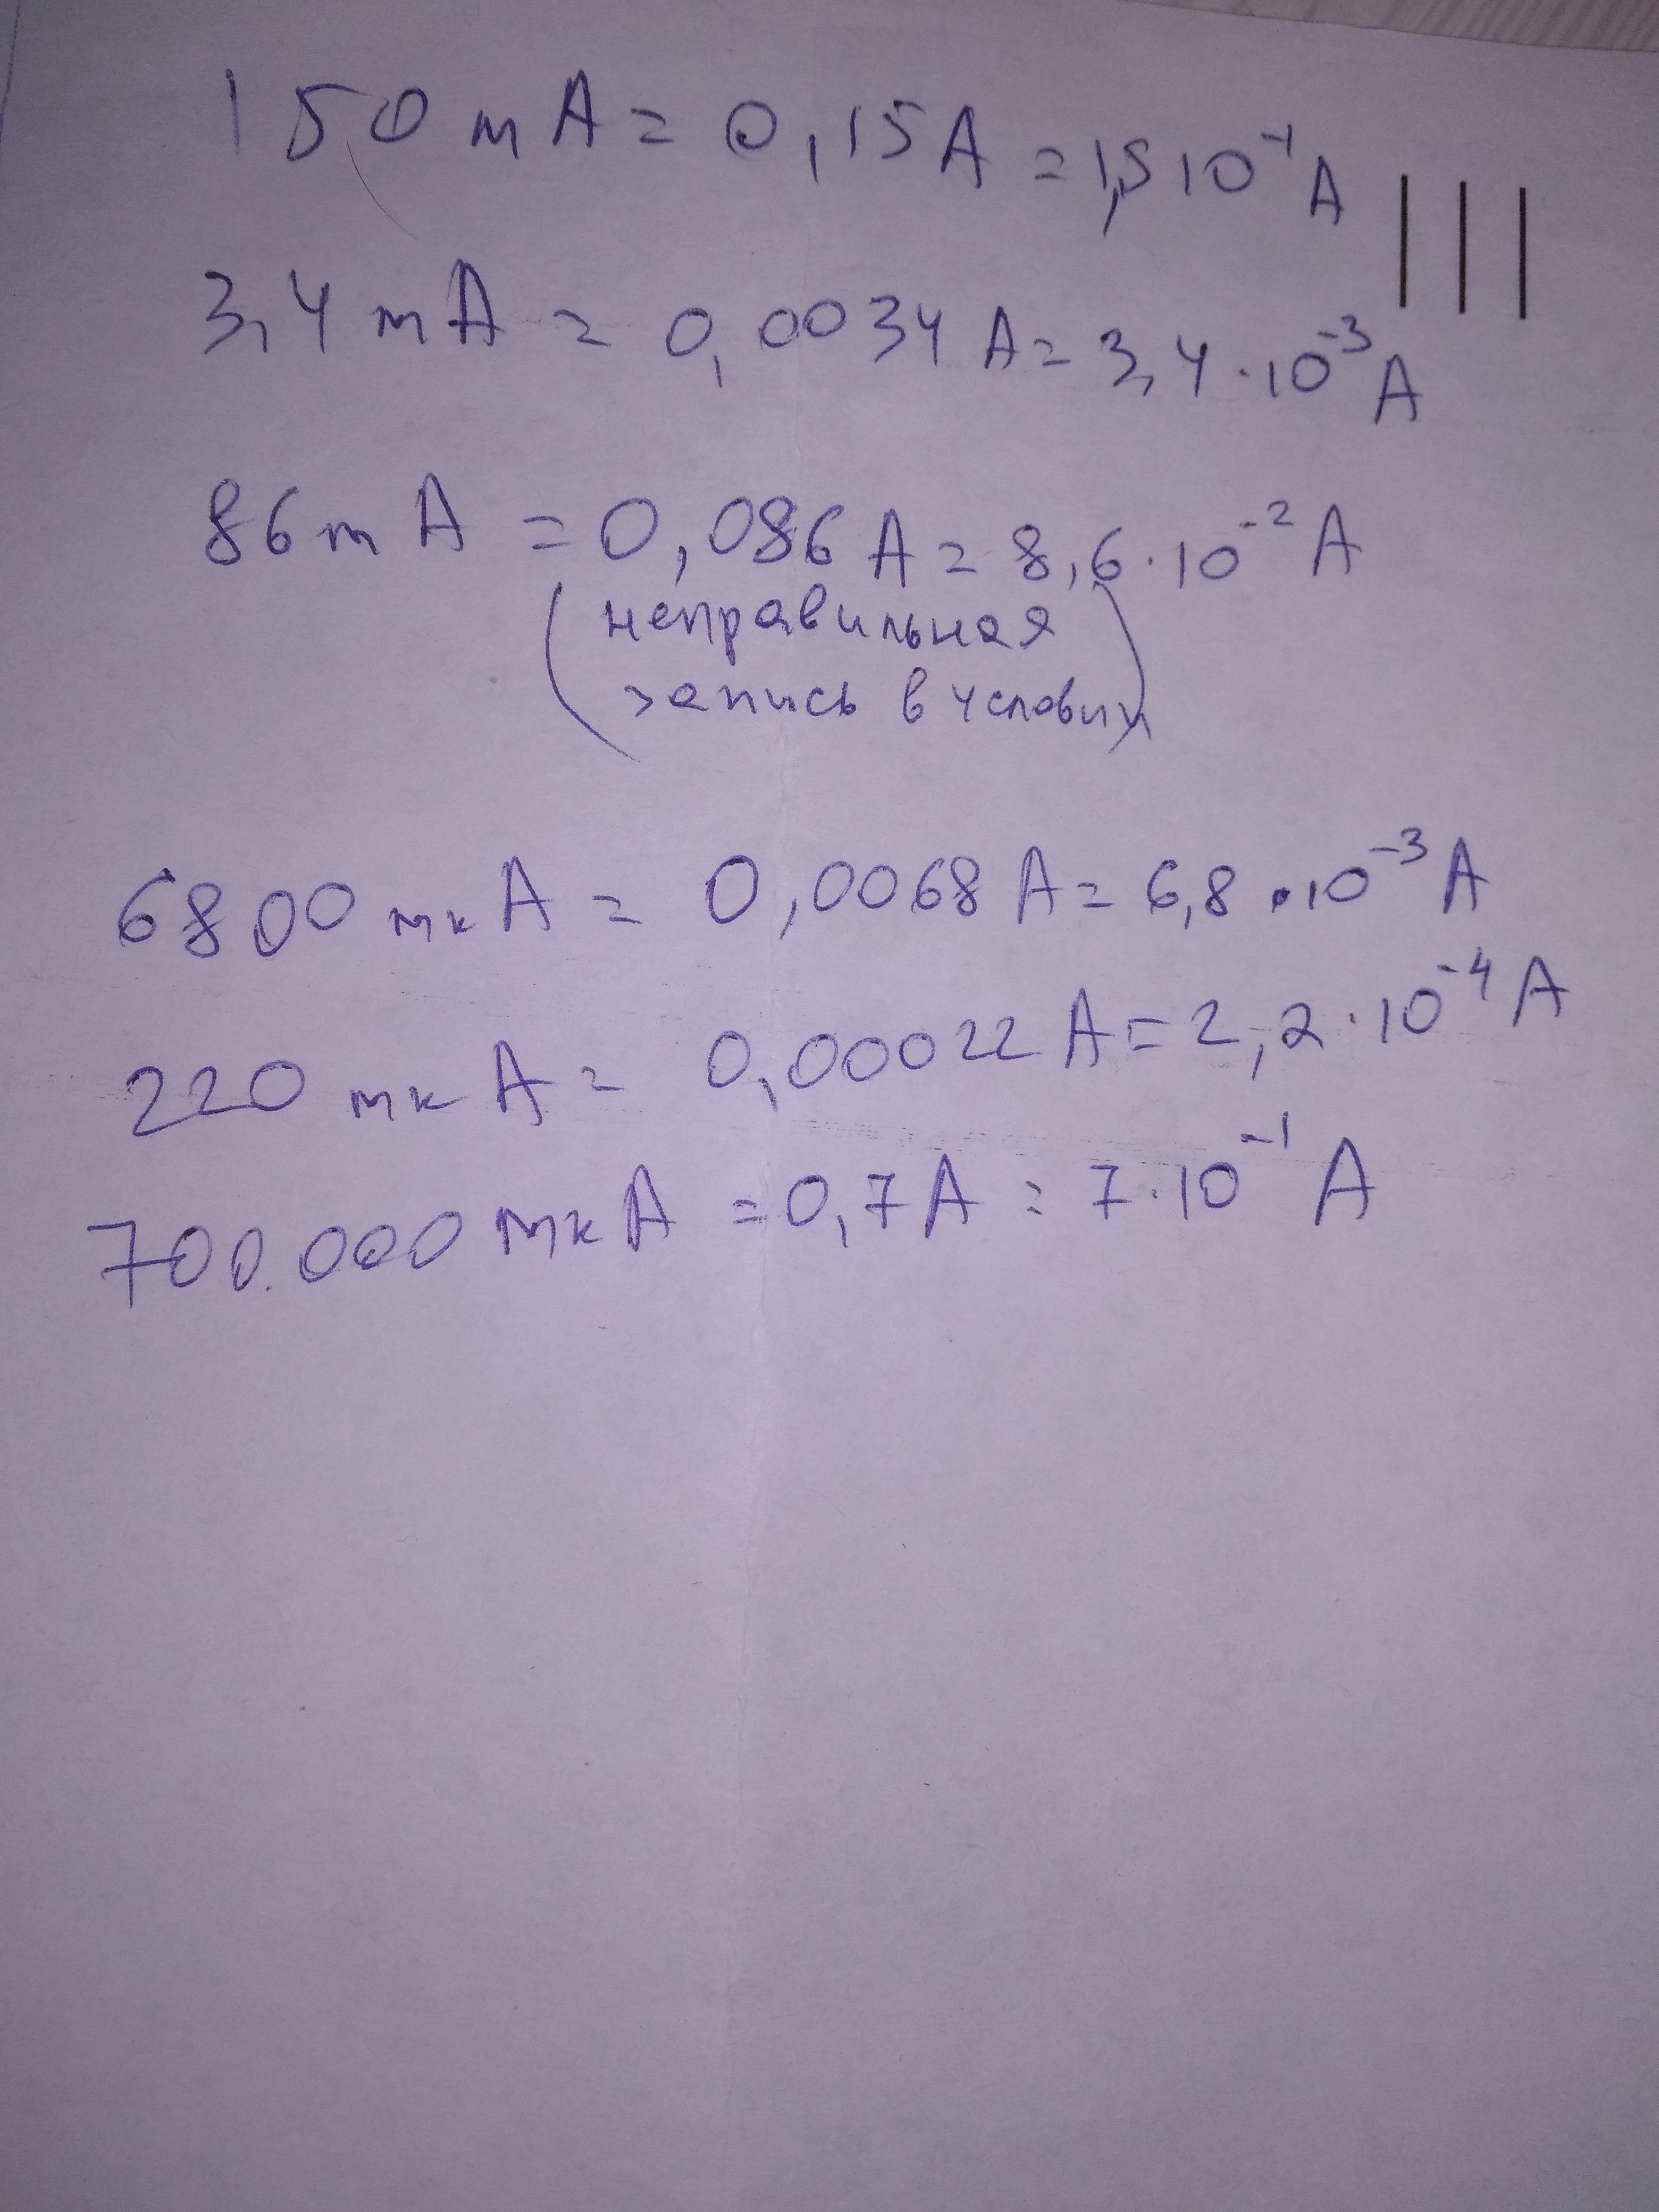 150 mA = 0,15A = 1,5 10⁻¹ A
3,4 mA = 0,0034 A = 3,4 · 10⁻³ A
86 mA = 0,086 A = 8,6 · 10⁻² A
(неправильная
запись в условии)
6800 мкА = 0,0068 A = 6,8 · 10⁻³ A
220 мкА = 0,00022 A = 2,2 · 10⁻⁴ A
700.000 мкА = 0,7 A = 7 · 10⁻¹ A